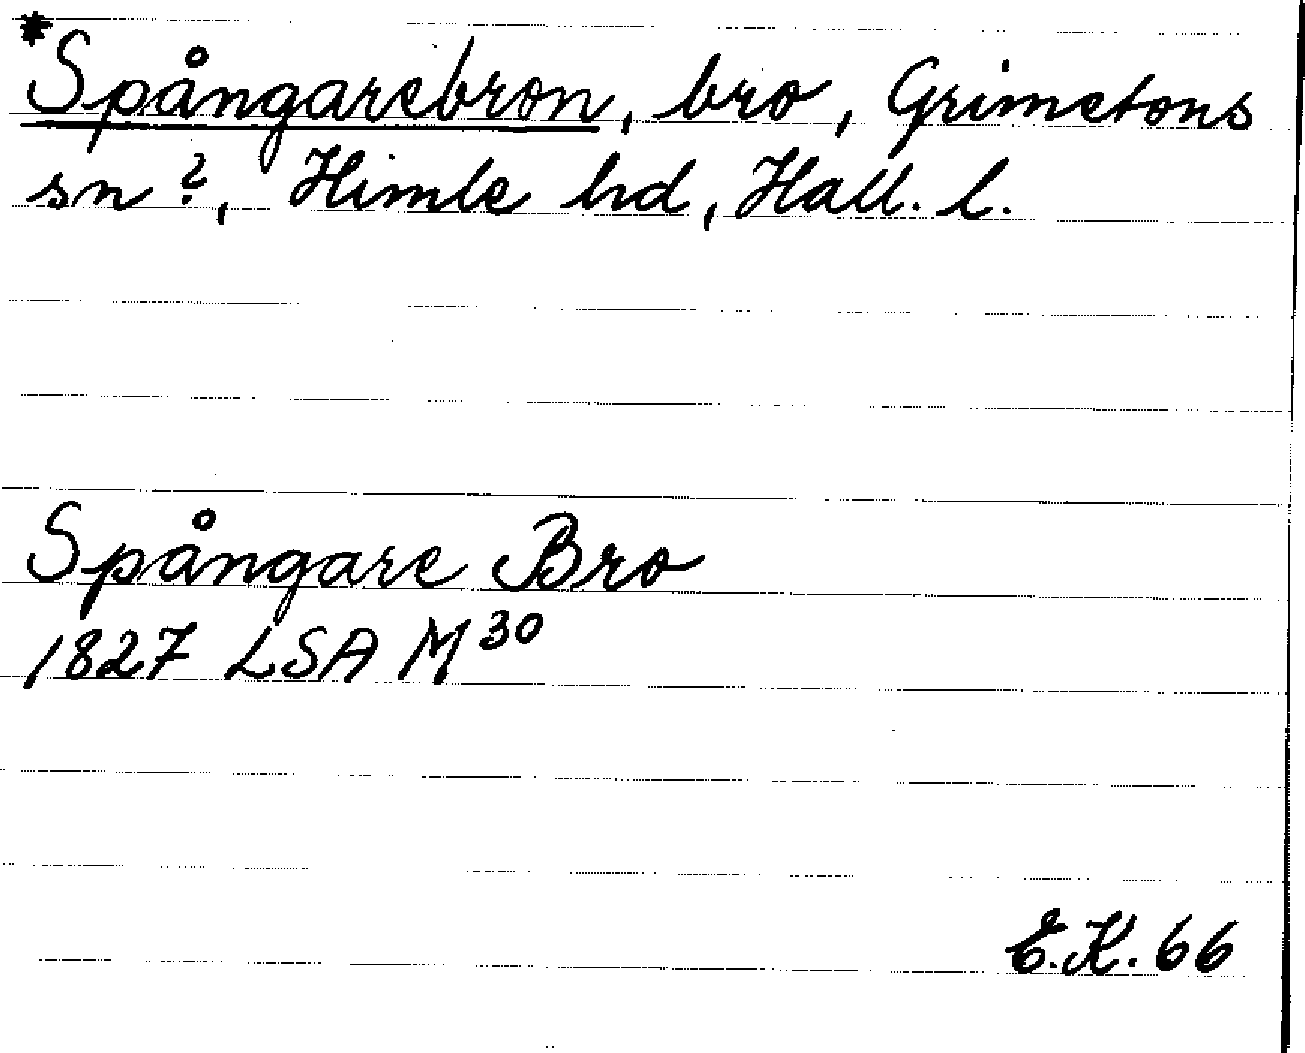 *Spångarebron, bro, Grimetons
sn?, Himle hd, Hall. l.
Spångare Bro
1827 LSA M30
E.K. 66